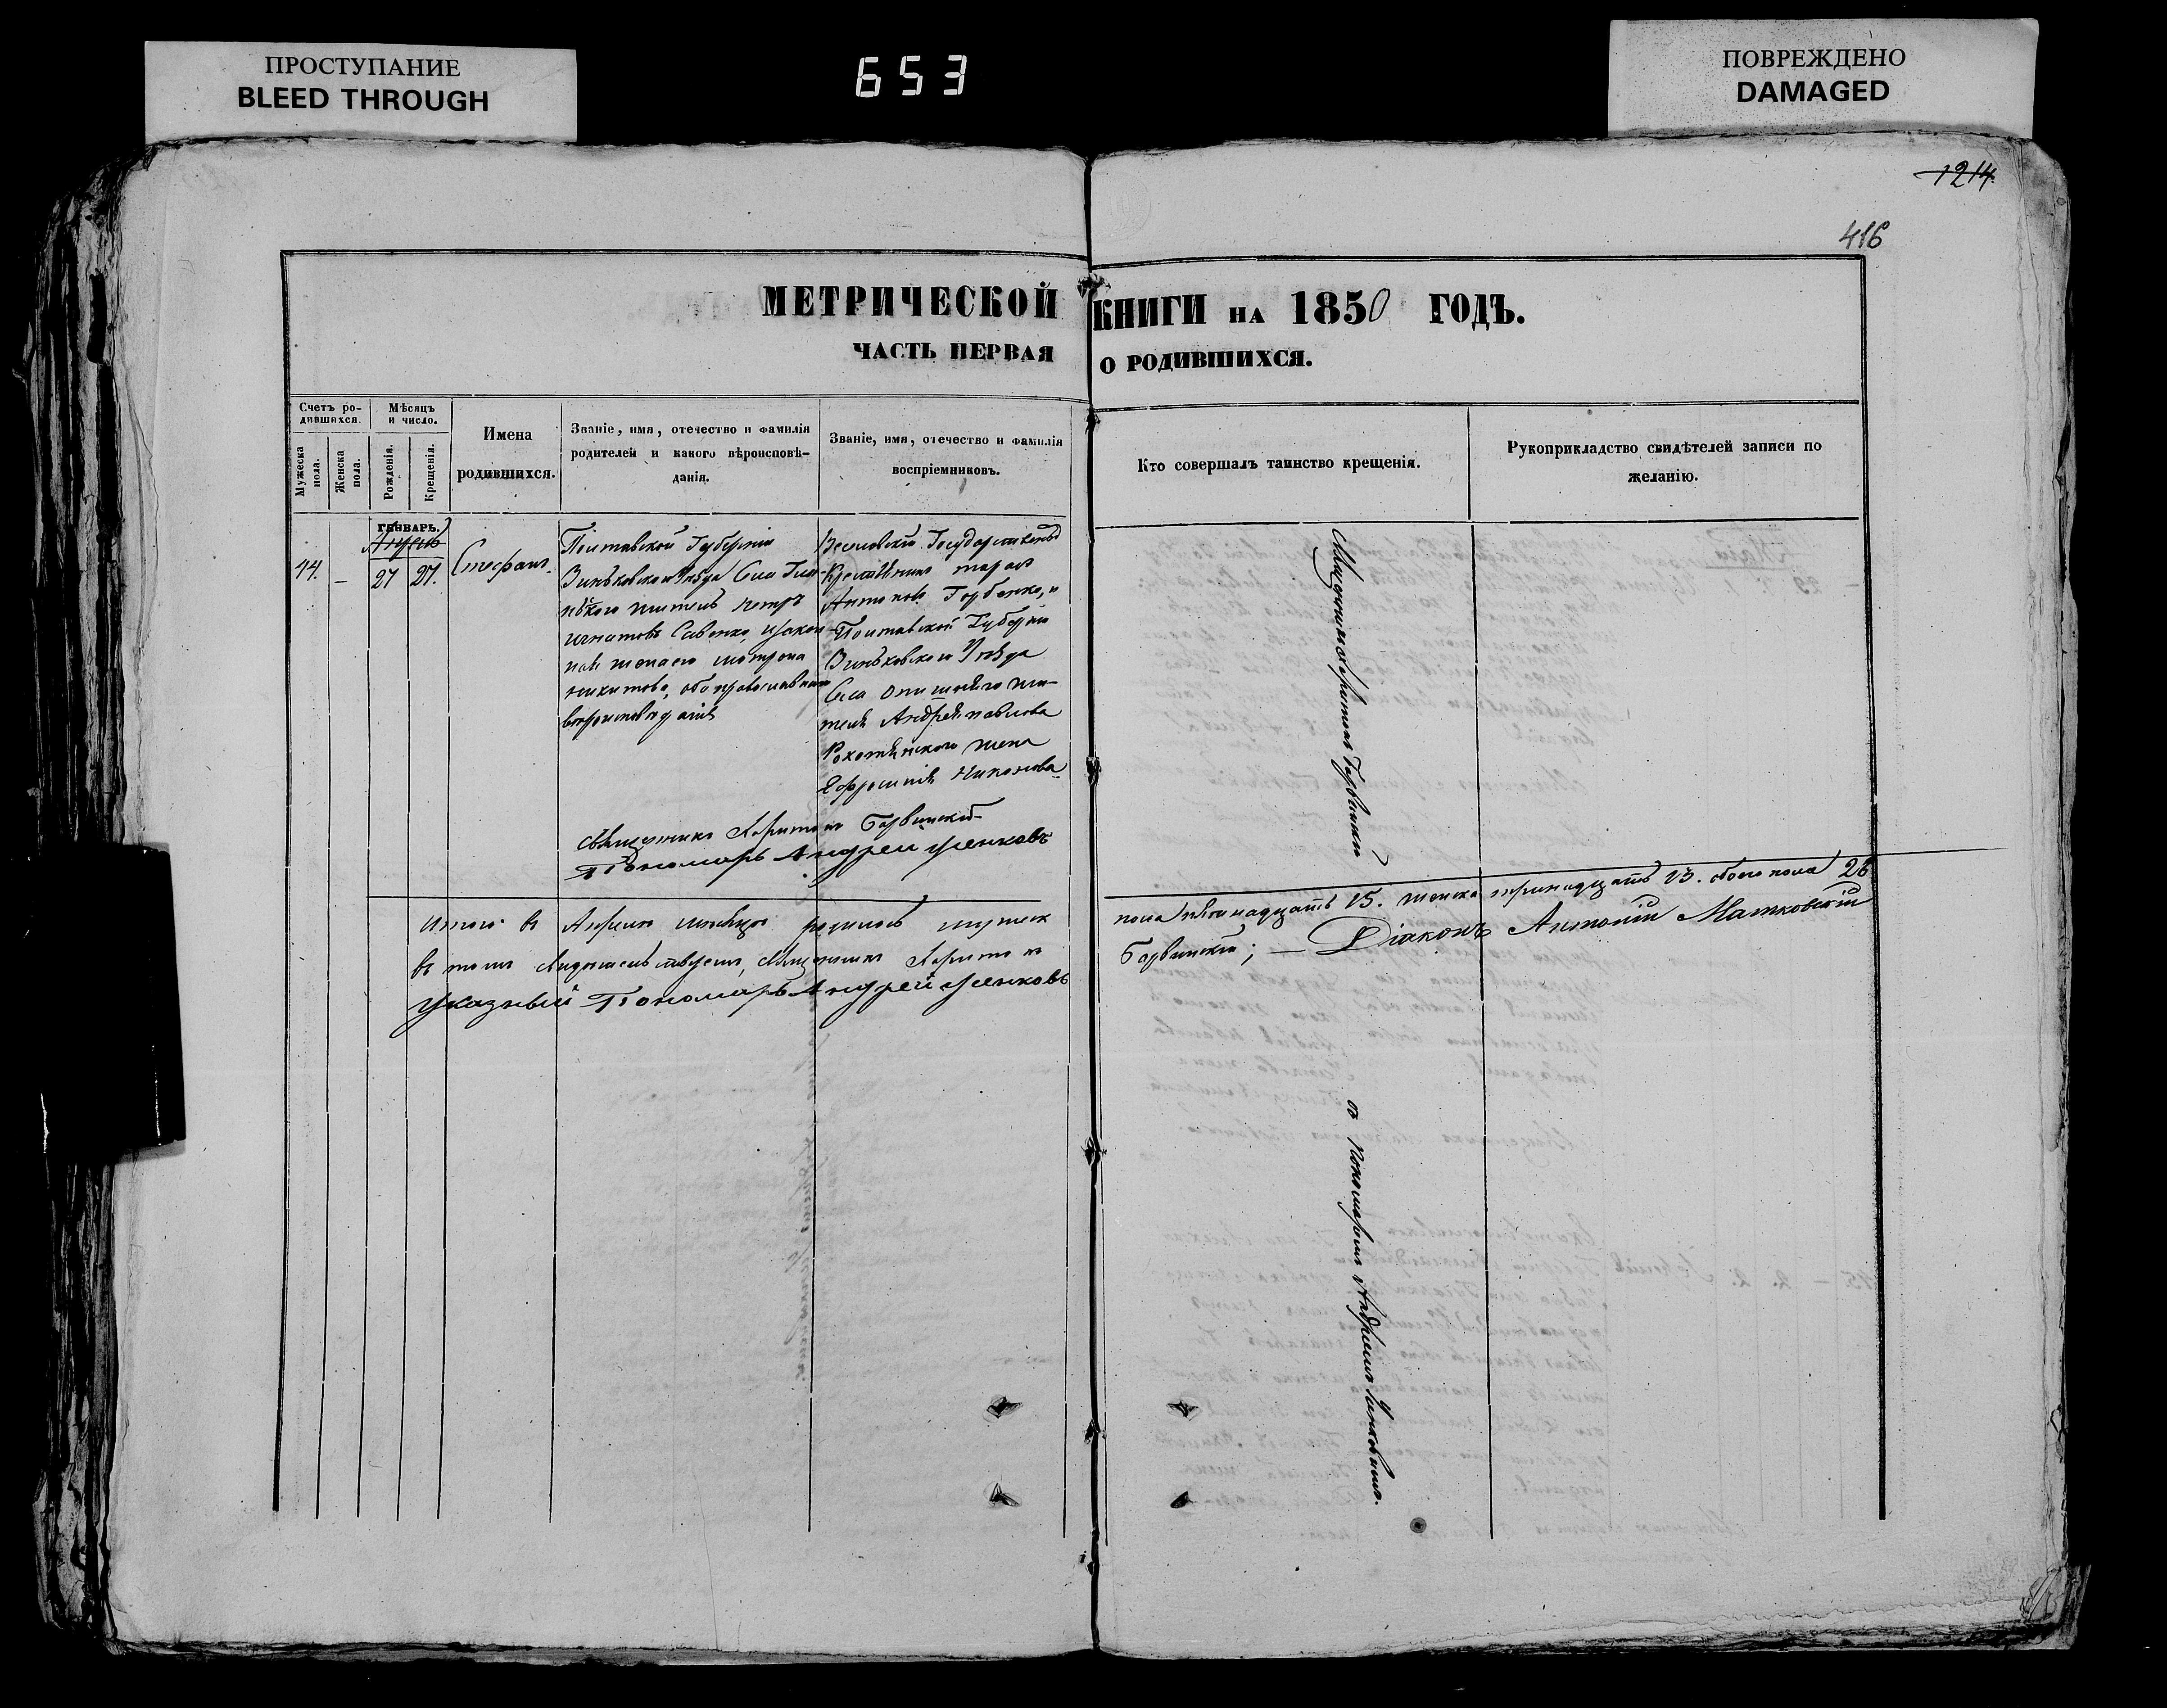 ПРОСТУПАНИЕ
BLEED THROUGH
653
ПОВРЕЖДЕНО
DAMAGED
1214
416
МЕТРИЧЕСКОЙ КНИГИ НА 1850 ГОДЪ.
ЧАСТЬ ПЕРВАЯ О РОДИВШИХСЯ.
Счетъ ро-
дившихся.
Мужеска
пола.
Женска
пола.
Мѣсяцъ
и число.
Рожденія.
Крещенія.
Имена
родившихся.
Званіе, имя, отечество и фамилія
родителей и какого вѣроисповѣ-
данія.
Званіе, имя, отечество и фамилія
воспріемниковъ.
Кто совершалъ таинство крещенія.
Рукоприкладство свидѣтелей записи по
желанію.
ГЕНВАРЬ.
Апрель
44. — 27 27. Стефанъ.
Полтавской Губерніи
Зиньковского Уѣзда Села
житель Петръ
Игнатовъ Савенко, и закон
ная жена его Мотрона
Никитова, оба православнаго
вѣроисповѣданія
Государственный
Крестьянинъ Тарасъ
Антоновъ Горбенко, и
Полтавской Губерніи
Зиньковского Уѣзда
Села Опишнего жи-
теля Андрея Павлова
жена
Ефросинія Никонова
Священникъ Харитонъ Борвинскій
Пономарь Андрей Усенковъ
Священникъ Харитонъ Борвинскій
съ пономаремъ Андреемъ Усенковымъ.
Итого въ Апрелѣ месяце родилось мужеск
пола пятнадцать 15. женска тринадцать 13. обоего пола 28
въ томъ свидетельствуемъ, Священникъ Харитонъ
Борвинскій; — Діаконъ Антоній Матковскій
Указный Пономарь Андрей Усенковъ